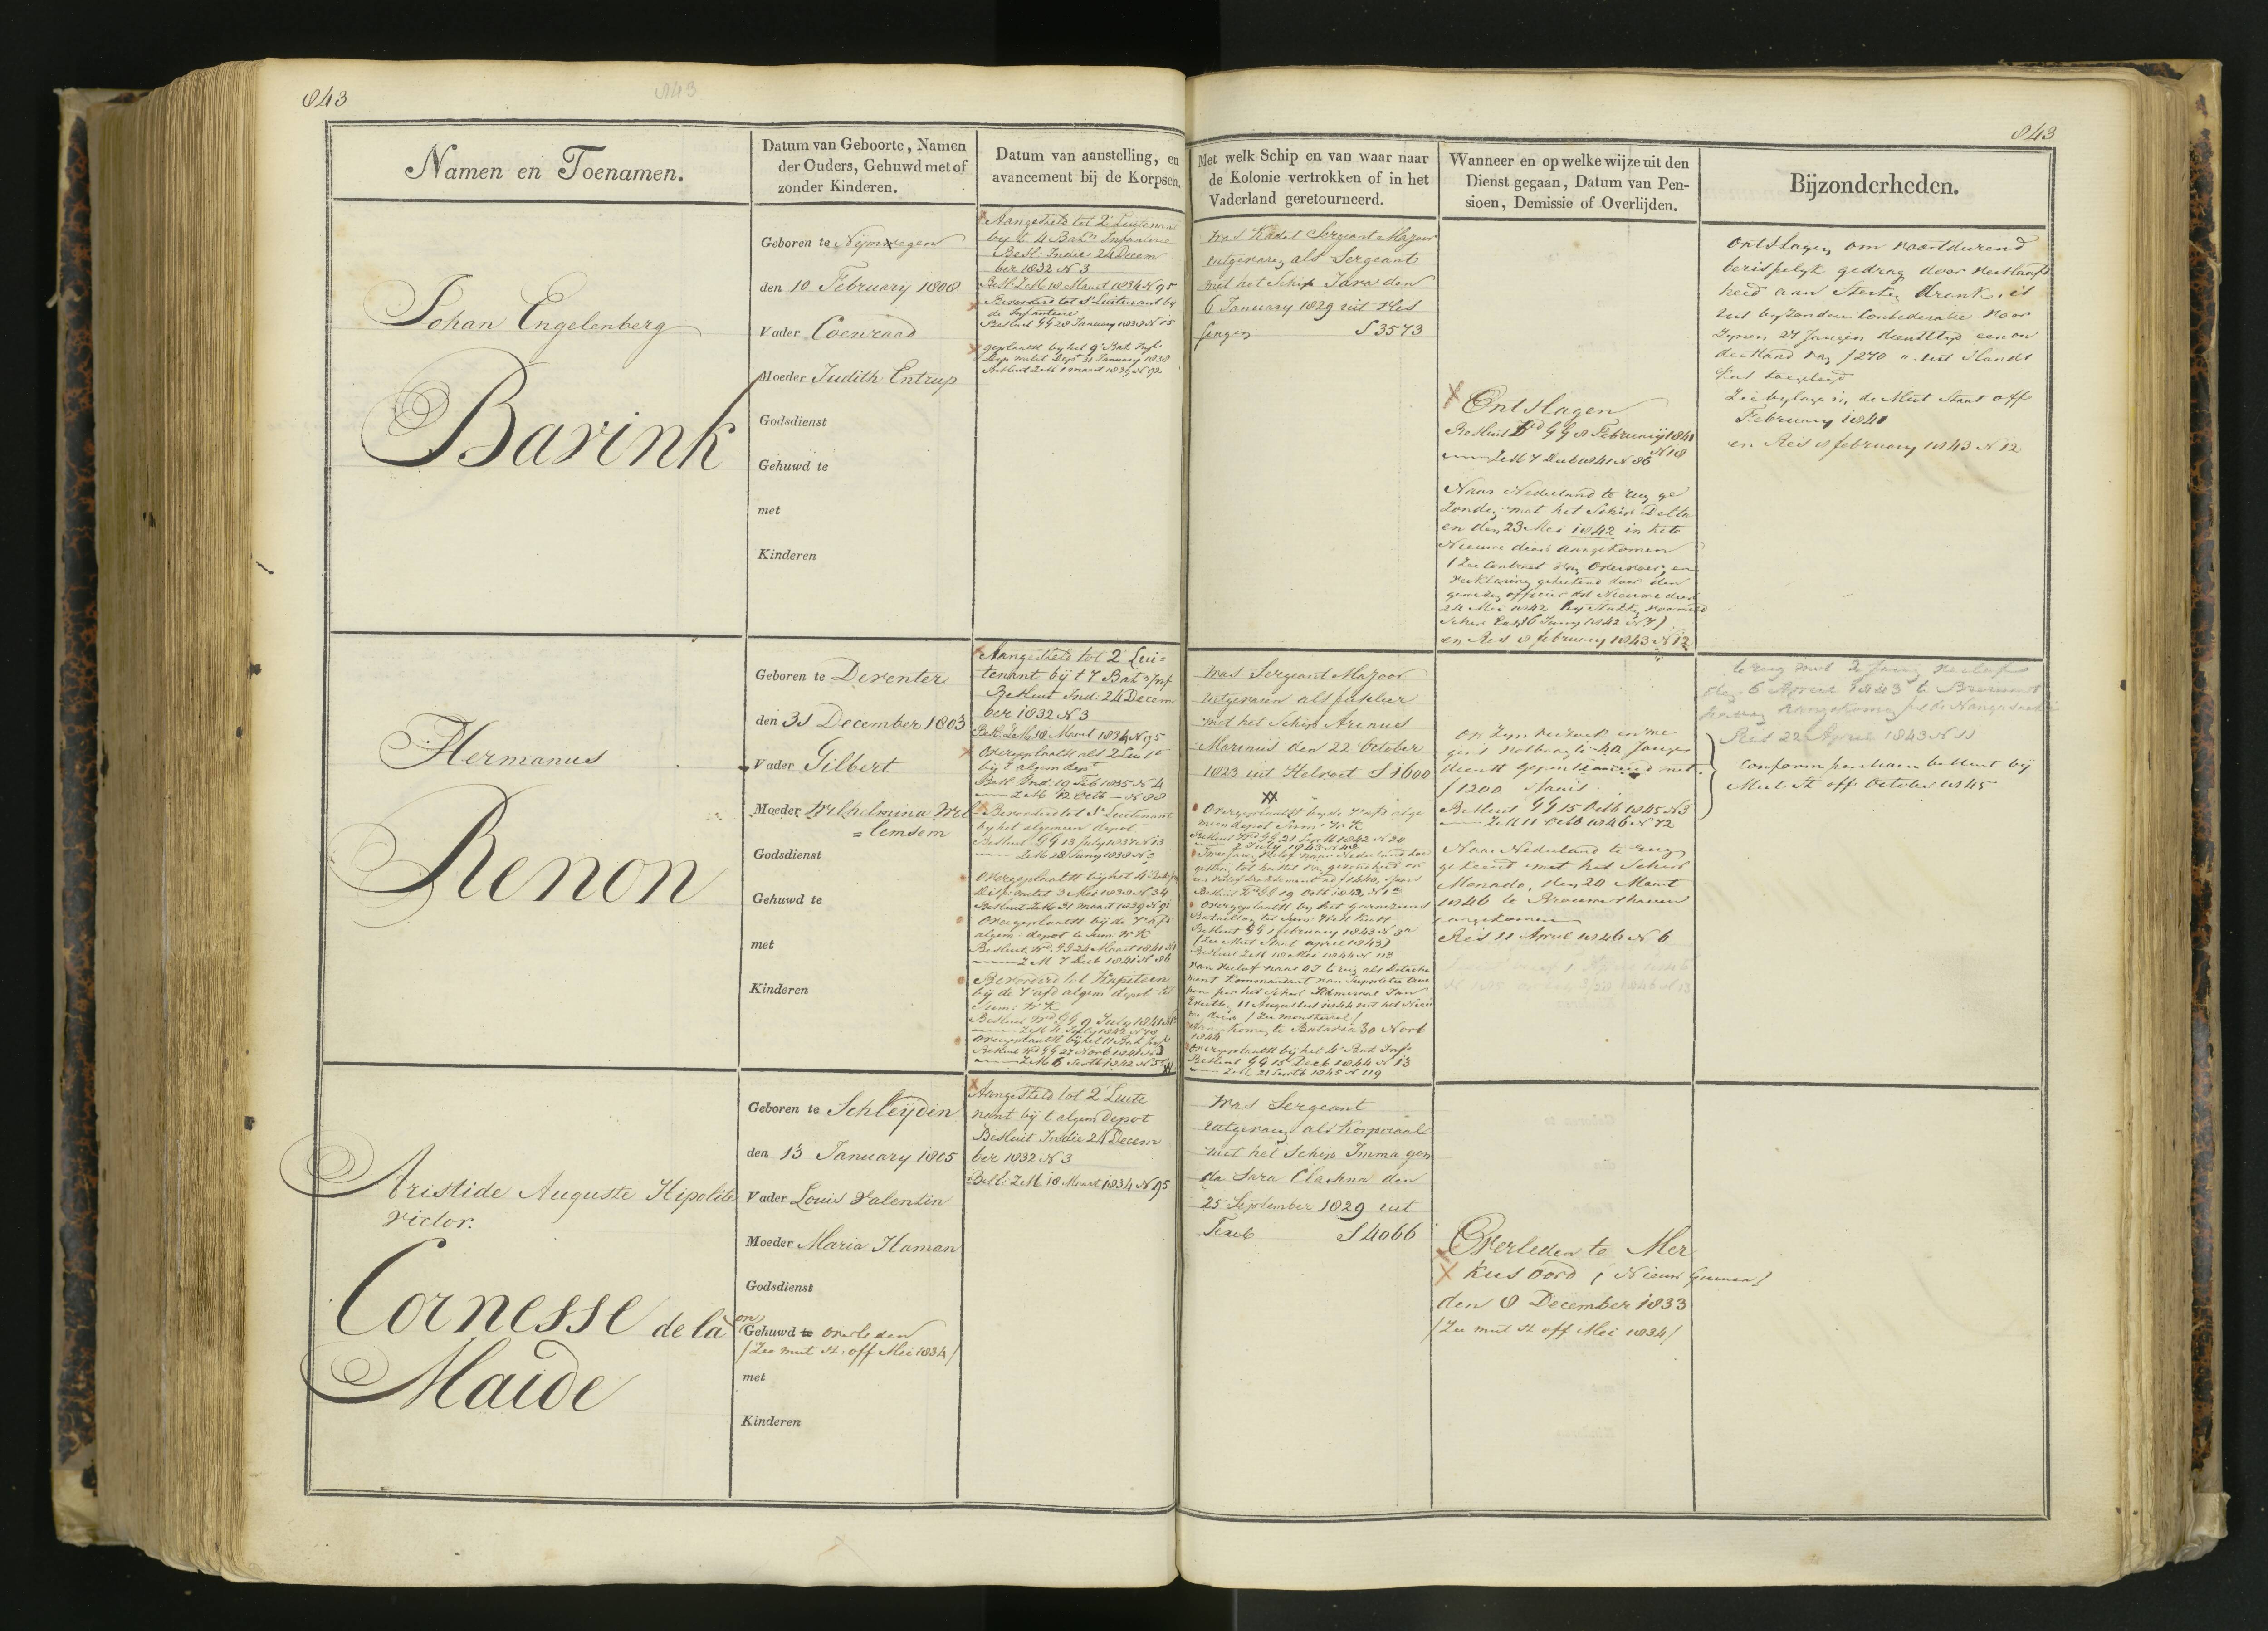 843
843
843
Namen en Toenamen.
Datum van Geboorte, Namen
der Ouders, Gehuwd met of
zonder Kinderen.
Datum van aanstelling, en
avancement bij de Korpsen.
Met welk Schip en van waar naar
de Kolonie vertrokken of in het
Vaderland geretourneerd.
Wanneer en op welke wijze uit den
Dienst gegaan, Datum van Pen-
sioen, Demissie of Overlijden.
Bijzonderheden.
Johan Engelenberg
Barink
Geboren te Nymwegen
den 10 February 1808
Vader Coenraad
Moeder Judith Entrup
Godsdienst
Gehuwd te
met
Kinderen
Aangesteld tot 2e Luitenant
bij t 4 Batn Infanterie
Besl: Indie 24 Decem
ber 1832 N 3
Besl: ZeM 18 Maart 1834 N 95
Bevorderd tot 1e Luitenant by
de Infanterie
Besluit GG 28 January 1838 N 15
geplaatst bij het 9e Bat Inf
31 January 1838
Besluit ZeM 1 maart 1839 N 92
was Kadet Sergeant Majoor
uitgevaren als Sergeant
met het Schip Java den
6 January 1829 uit Vlis
singen S 3573
Ontslagen
Besluit Wd GG 8 February 1841
N 18
ZeM 7 Decb 1841 N 86
Naar Nederland te rug ge
zonden met het Schip Delta
en den 23 Mei 1842 in het
Nieuwe diep aangekomen
(Zie Contract van Overvoer, en
verklaring geteekend door den
officier Nieuwe diep
24 Mei 1842
6 Juny 1842 N 7)
en Res 8 february 1843 N 12
Ontslagen om voortdurend
berispelyk gedrag door verslaafd
heid aan sterken drank, is
uit byzondere Consideratie voor
zynen 27 Jarigen diensttyd een on
derstand van f 270 " uit Slands
kas toegelegd
Zie bylage in de Mut Staat off
February 1841
en Res 8 february 1843 N 12
Hermanus
Renon
Geboren te Deventer
den 31 December 1803
Vader Gilbert
Moeder Wilhelmina Wil
= lemsem
Godsdienst
Gehuwd te
met
Kinderen
Aangesteld tot 2e Lui=
tenant bij t 7 Batn Inf
Besluit Ind: 24 Decem
ber 1832 N 3
Besl: ZeM 18 Maart 1834 N 95
Overgeplaatst als 2 Luit
bij t algem dept
Besl Ind 19 Feb 1835 N 4
ZeM 12 Octb N 88
Bevorderd tot 1e Luitenant
by het algemeen depot
Besluit GG 13 July 1837 N 13
ZeM 28 Juny 1838 N 2
Overgeplaatst bij het 4 Bat Inf
3 Mei 1838 N 34
Besluit ZeM 31 maart 1839 N 91
Overgeplaatst bij de 7e afd
algem depot te Sum W K
Besluit Wd GG 24 Maart 1841
ZeM 7 Decb 1841 N 86
Bevorderd tot Kapitein
bij de 7 afd algem depot te
Sum: W K
Besluit Wd GG 9 July 1841
ZeM 4 July 1842 N 78
Overgeplaatst bij het 11 Bat Inf
Besluit Wd GG 27 Novb 1841 N 3
ZeM 6 Septb 1842 N 55
was Sergeant Majoor
uitgevaren als fuselier
met het Schip Arinus
Marinus den 22 October
1823 uit Helvoet S 1600
XX
Overgeplaatst by de 7 afd alge
meen depot Sum: W K
Besluit Wd GG 21 Septb 1842 N 20
7 July 1843 N 48
Besluit Wd GG 19 Octb 1842 N 1
Overgeplaatst by het Garnizoens
Bataillon ter Sum: West Kust
Besluit GG 1 february 1843 N 3
(Zie Mut Staat april 1843)
Besluit ZeM 18 Mei 1844 N 113
van verlof naar OI te rug als Detache
ment Kommandant van Suppletie troe
pen per het Schip Admiraal Jan
Evertsz, 11 Augustus 1844 uit het Nieu
we diep (Zie monsterrol)
aangekomen te Batavia 30 Novb
1844
Overgeplaatst bij het 4e Bat Inf
Besluit GG 15 Decb 1844 N 13
ZeM 21 Septb 1845 N 119
Op Zyn verzoek en we
gens volbragte 40 Jarigen
dienst gepensioneerd met
f 1200 'sJaars
Besluit GG 15 Octb 1845 N 3
ZeM 11 Octb 1846 N 72
Naar Nederland te rug
gekeerd met het Schip
Menado, den 24 Maart
1846 te Brouwershaven
aangekomen
Res 11 April 1846 N 6
te rug met 2 Jarig verlof
den 6 April 1843 te Brouwers
haven aangekomen
Res 22 April 1843 N 11
Conform pensioen besluit bij
Mut St off October 1845
Aristide Auguste Hipolite
Victor.
Cornesse de la
Maide
Geboren te Schleijden
den 13 January 1805
Vader Louis Valentin
Moeder Maria Haman
Godsdienst
on
Gehuwd te overleden
(Zie mut st: off Mei 1834)
met
Kinderen
Aangesteld tot 2e Luite
nant bij t algem depot
Besluit Indie 24 Decem
ber 1832 N 3
Besl: ZeM 18 Maart 1834 N 95
was Sergeant
uitgevaren als Korporaal
met het Schip Imma gon
da Sara Clasina den
25 September 1829 uit
Texel S 4066
Overleden te Mer
kus oord (Nieuw Guinea)
den 8 December 1833
(Zie mut st off Mei 1834)